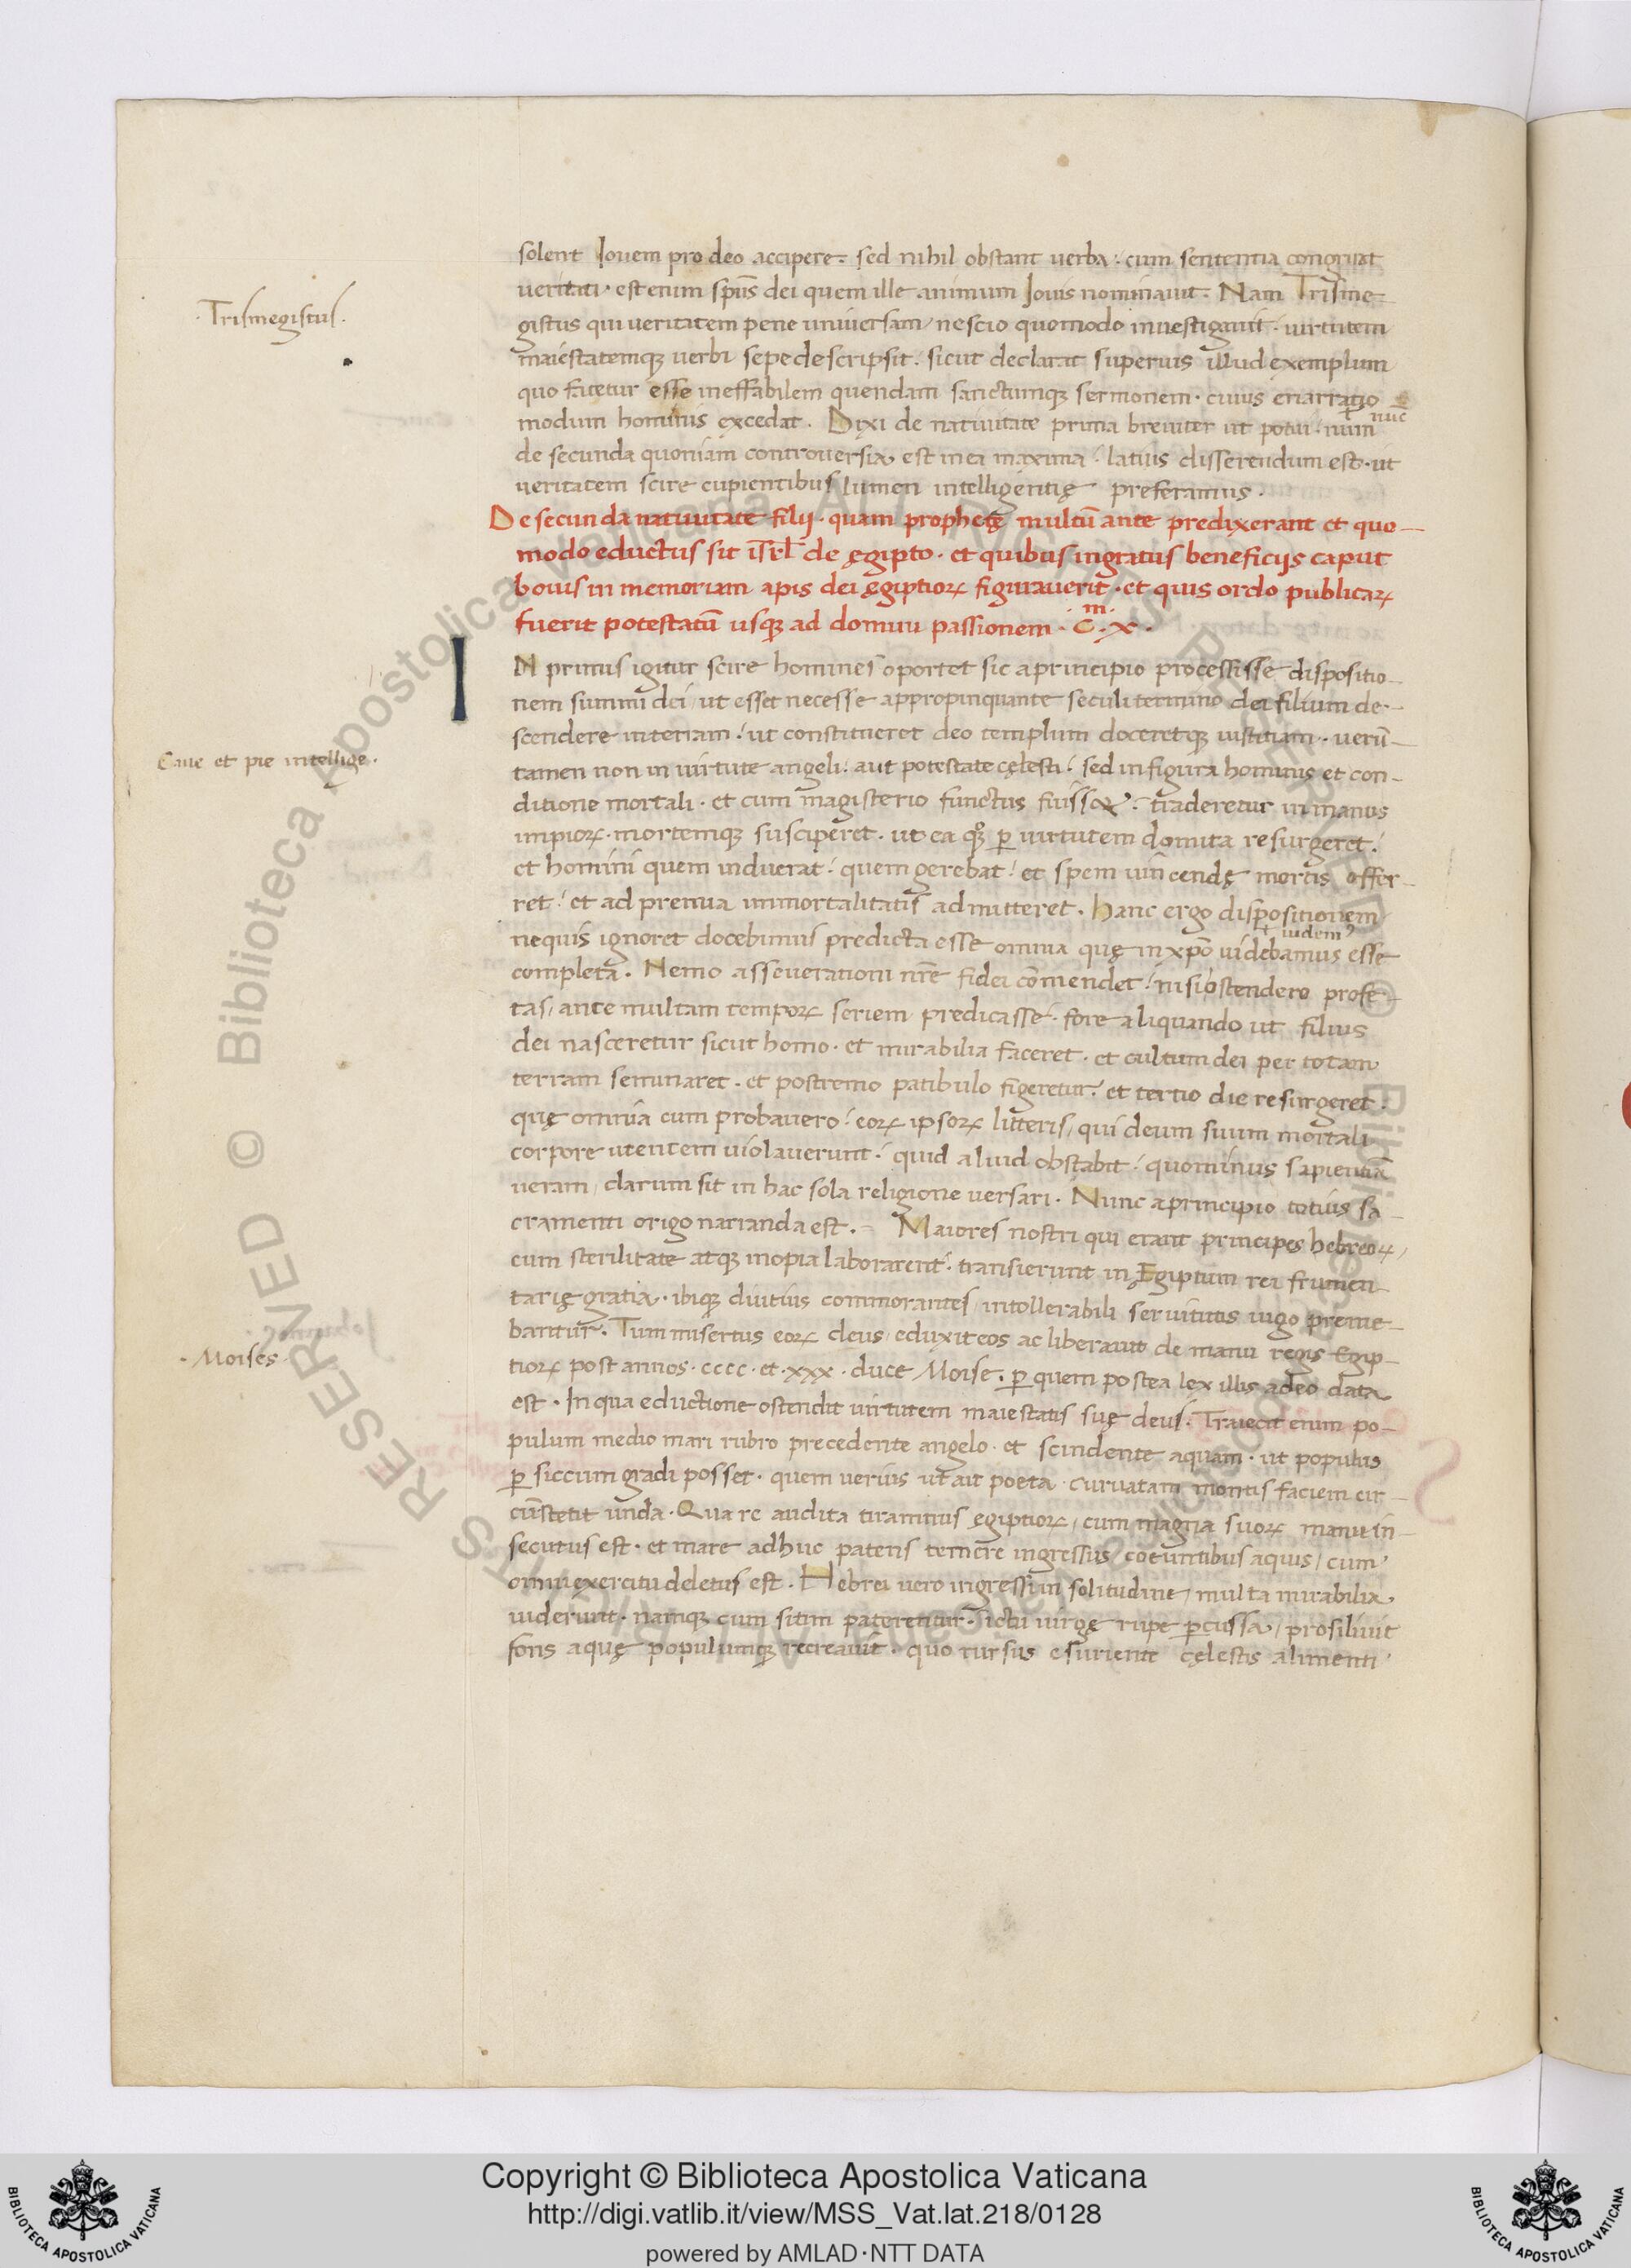 solent Iovem pro deo accipere. sed nihil obstant verba. cum sententia congruat
veritati. est enim sp̄us dei quem ille animum Iovis nominavit. Nam Trisme-
.Trismegistus.
gistus qui veritatem pene universam nescio quomodo investigavit. virtutem
maiestatemq; verbi sepe descripsit. sicut declarat superius illud exemplum
quo fatetur esse ineffabilem quendam sanctumq; sermonem. cuius enarratio
modum hominis excedat. Dixi de nativitate prima breviter ut potui. num
+ nuc̄
de secunda quoniam controversia est mea maxima. latius disserendum est. ut
veritatem scire cupientibus lumen intelligentię preferamus.
De secunda nativitate filij. quam prophetę multū ante predixerant et quo-
modo eductus sit isrl̄ de ęgipto. et quibus ingratus beneficijs caput
bovis in memoriam apis dei ęgiptioꝝ figuraverit. et quis ordo publicaꝝ
fuerit potestatū usq; ad domini passionem. C.m X.
IN primis igitur scire homines oportet sic a principio processisse dispositio-
nem summi dei ut esset necesse appropinquante seculi termino dei filium de-
scendere in terram. ut constitueret deo templum doceretq; iustitiam. verū-
Cave et pie intellige.
tamen non in virtute angeli. aut potestate cęlesti. sed in figura hominis et con-
ditione mortali. et cum magisterio functus fuisset. traderetur in manus
impioꝝ. mortemq; susciperet. ut ea qq̄ ꝑ virtutem domita resurgeret.
et homini quem induerat. quem gerebat. et spem vincendę mortis offer-
ret. et ad premia immortalitatis admitteret. Hanc ergo dispositionem
nequis ignoret docebimus predicta esse omnia quę in xp̄o videbamus esse
+ videm'
completa. Nemo asseverationi nr̄e fidei cōmendet. nisi ostendero profe-
tas, ante multam tempoꝝ seriem predicasse. fore aliquando ut filius
dei nasceretur sicut homo. et mirabilia faceret. et cultum dei per totam
terram seminaret. et postremo patibulo figeretur. et tertio die resurgeret.
quę omnia cum probavero. eoꝝ ipsoꝝ litteris, qui deum suum mortali
corpore utentem violaverunt. quid aliud obstabit. quominus sapientiā
veram, clarum sit in hac sola religione versari. Nunc a principio totius sa-
cramenti origo narranda est. Maiores nostri qui erant principes hebreoꝝ,
cum sterilitate atq; inopia laborarent. transierunt in Ęgiptum rei frumen-
tarię gratia. ibiq; diutius commorantes, intollerabili servitutis iugo preme-
bantur. Tum misertus eoꝝ deus, eduxit eos ac liberavit de manu regis Egip-
.Moises.
tioꝝ post annos. cccc. et. xxx. duce Moise. ꝑ quem postea lex illis a deo data
est. In qua eductione ostendit virtutem maiestatis suę deus. Traiecit enim po-
pulum medio mari rubro precedente angelo. et scindente aquam. ut populus
ꝑ siccum gradi posset. quem verius ut ait poeta. curvatam montis faciem cir-
cūstetit unda. Qua re audita tirannus ęgiptioꝝ, cum magna suoꝝ manu in-
secutus est. et mare adhuc patens temere ingressus, coeuntibus aquis, cum
omni exercitu deletus est. Hebrei vero ingressi in solitudine, multa mirabilia
viderunt. namq; cum sitim paterentur. ictu virgę rupe ꝑcussa, prosilivit
fons aquę populumq; recreavit. quo rursus esuriente cęlestis alimenti
Copyright © Biblioteca Apostolica Vaticana
http://digi.vatlib.it/view/MSS_Vat.lat.218/0128
powered by AMLAD·NTT DATA
BIBLIOTECA APOSTOLICA VATICANA
BIBLIOTECA APOSTOLICA VATICANA